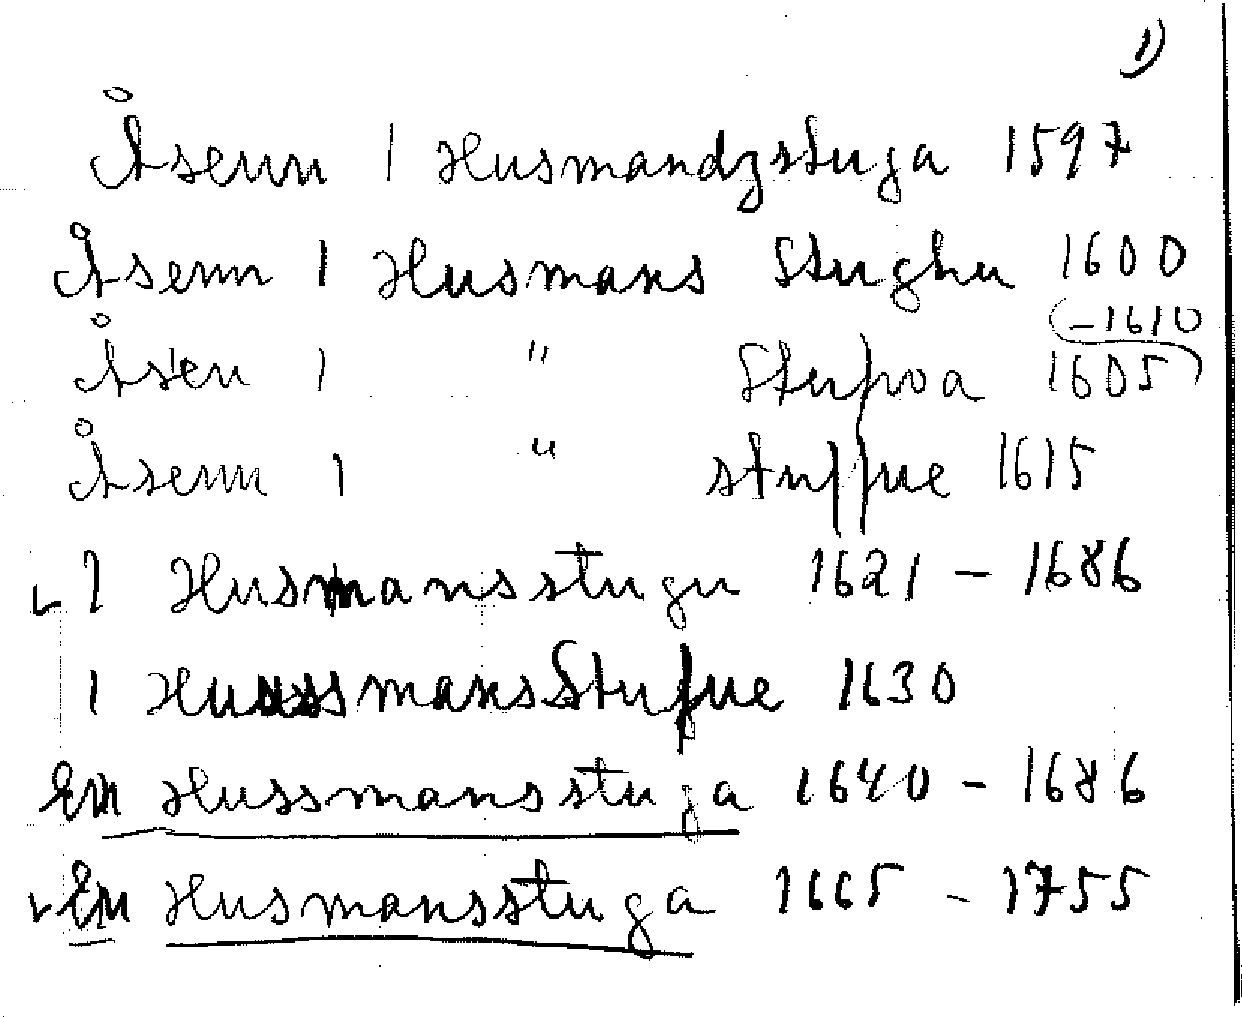 1)
Åsenn 1 Husmandzstuga 1597
Åsenn 1 Husmans Stughu 1600
(-1610)
Åsen 1 " Stufwa 1605
Åsenn 1 " stuffue 1615
1 Husmansstugu 1621 – 1686
1 HussmansStufue 1630
En Hussmansstuga 1640 – 1686
En Husmansstuga 1665 – 1755